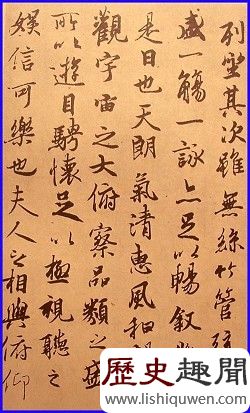 列坐其次雖無絲竹管弦
盛一觴一詠亦足以暢敘
是日也天朗氣清惠風和
觀宇宙之大俯察品類之盛
所以遊目騁懷足以極視聽之
娛信可樂也夫人之相與俯仰
歷史趣聞
www.lishiquwen.com